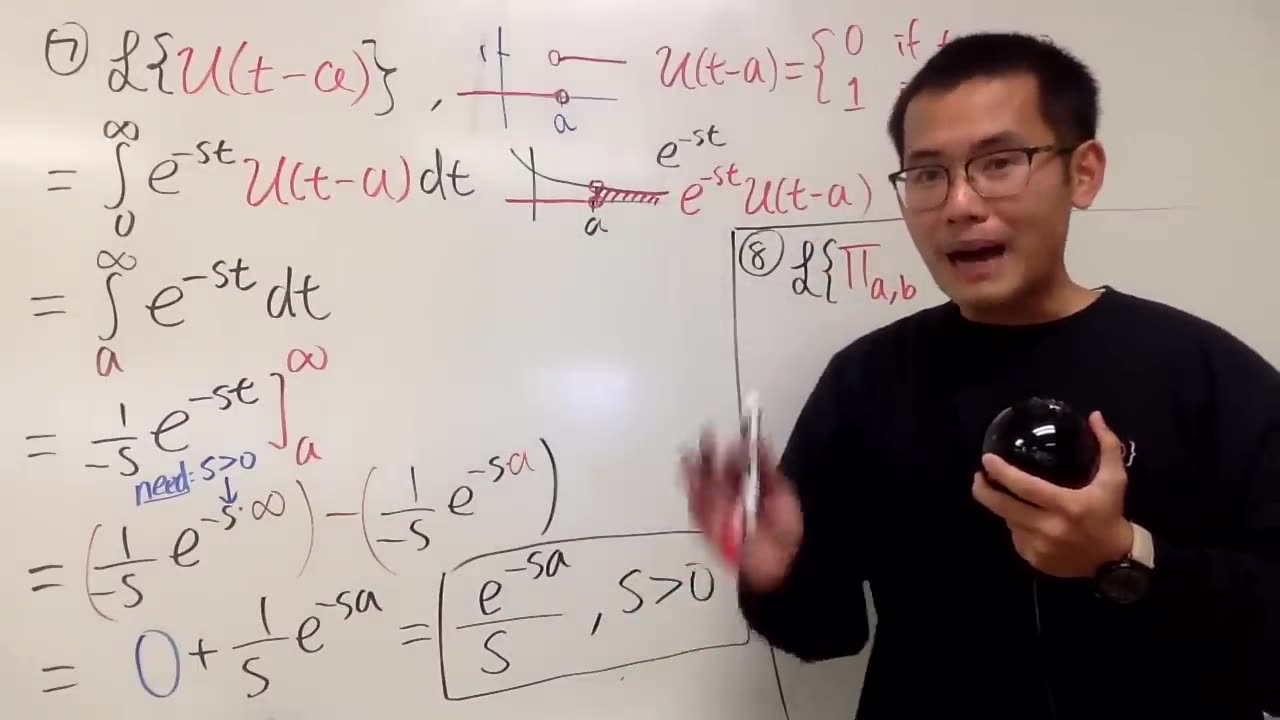 ⑦ ℒ{𝒰(t-a)}, 1 a 𝒰(t-a)={0 if t
1
= ∫₀^∞ e^{-st} 𝒰(t-a) dt a e^{-st} e^{-st} 𝒰(t-a)
= ∫ₐ^∞ e^{-st} dt
= 1/-s e^{-st} ]ₐ^∞
need: s>0
= (1/-s e^{-s·∞}) - (1/-s e^{-sa})
= 0 + 1/s e^{-sa} = e^{-sa}/s , s>0
⑧ ℒ{Π_{a,b}
}